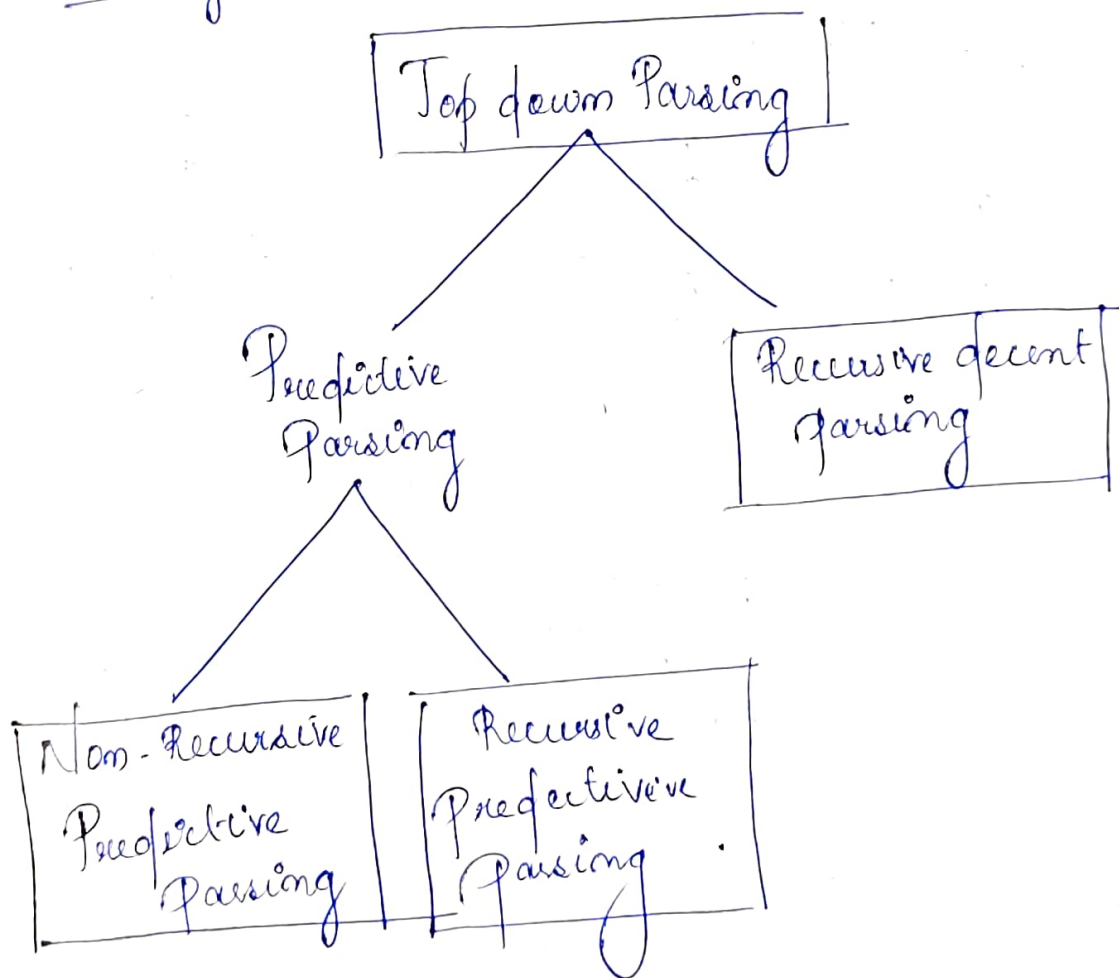 Top down Parsing
Predictive
Parsing
Recursive decent
parsing
Non-Recursive
Predictive
Parsing
Recursive
Predectiveive
Parsing